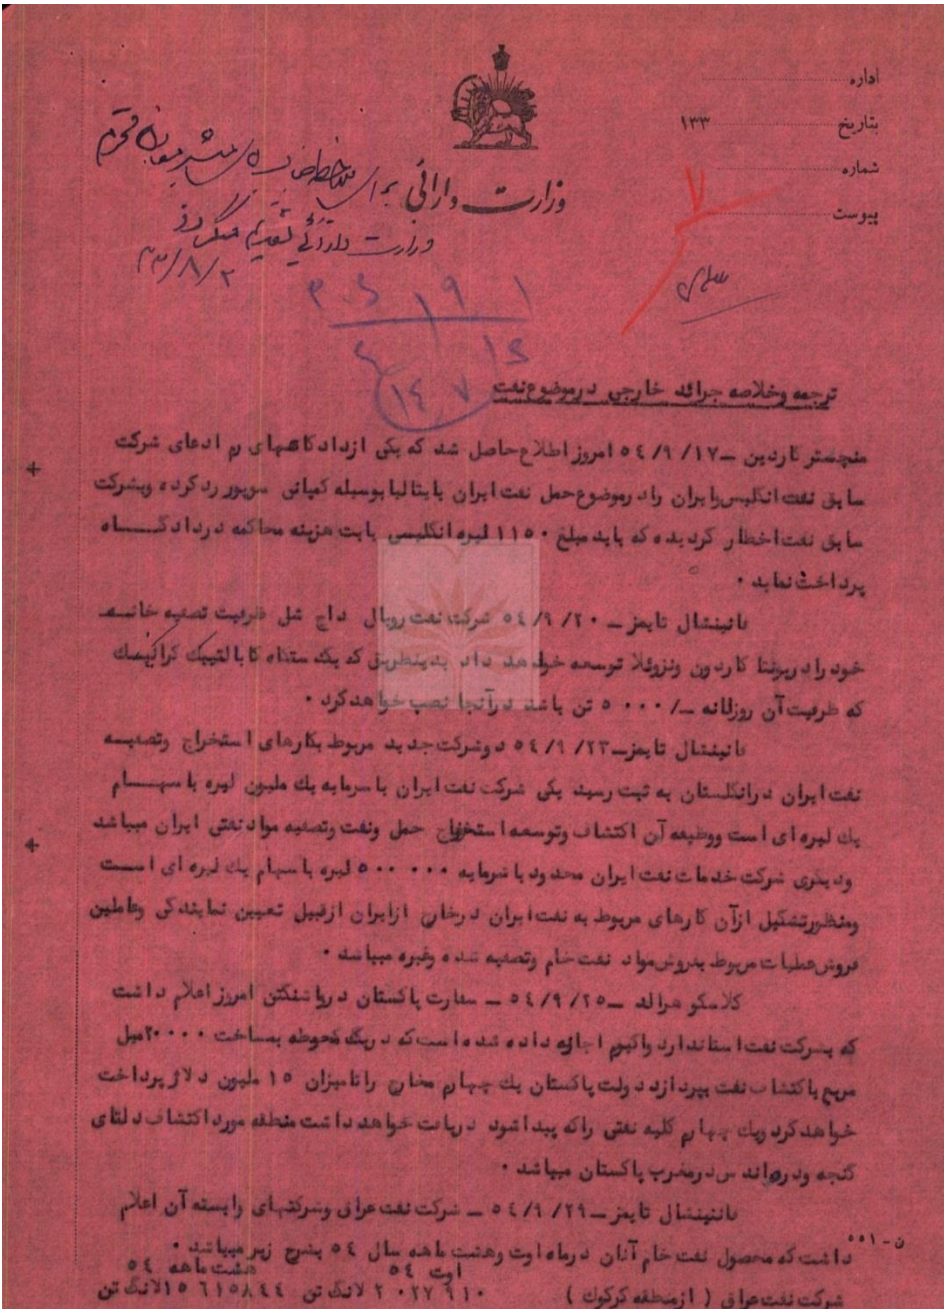 اداره
بتاریخ ۱۳۳
شماره
پیوست
۷
وزارت دارائی
وزارت دارائی تقدیم میگردد
۳۳/۸/۲
۱۹۱
۱۴۰۷
ترجمه وخلاصه جرائد خارجی درموضوع نفت
منچستر گاردین – ۵٤/۹/۱۷ امروز اطلاع حاصل شد که یکی ازدادگاههای رم ادعای شرکت
سابق نفت انگلیس وایران رادرموضوع حمل نفت ایران بایتالیا بوسیله کمپانی سوپور ردکرده وبشرکت
سابق نفت اخطار گردیده که باید مبلغ ۱۱۵۰ لیره انگلیسی بابت هزینه محاکمه دردادگــــاه
پرداخت نماید ۰
نانینشال تایمز – ۵٤/۹/۲۰ شرکت نفت رویال داچ شل ظرفیت تصفیه خانــه
خود رادرپونتا کاردون ونزوئلا توسعه خواهد داد بدینطریق که یک دستگاه کاتالتیک کراکینگ
که ظرفیت آن روزانه –/۵۰۰۰ تن باشد درآنجا نصب خواهدکرد ۰
نانینشال تایمز– ۵٤/۹/۲۳ دوشرکت جدید مربوط بکارهای استخراج وتصفیــه
نفت ایران درانگلستان به ثبت رسید یکی شرکت نفت ایران با سرمایه یک ملیون لیره با سهــــام
یک لیره ای است ووظیفه آن اکتشاف وتوسعه استخراج حمل ونفت وتصفیه مواد نفتی ایران میباشد
ودیگری شرکت خدمات نفت ایران محدود با سرمایه ۵۰۰۰۰۰ لیره با سهام یک لیره ای اســت
ومنظورتشکیل ازآن کارهای مربوط به نفت ایران درخارج ازایران ازقبیل تعیین نمایندگی وعاملین
فروش عملیات مربوط بفروش مواد نفت خام وتصفیه شده وغیره میباشد ۰
کلاسکو هرالد – ۵٤/۹/۲۵ – سفارت پاکستان درواشنگتن امروز اعلام داشت
که بشرکت نفت استاندارد واکیوم اجازه داده شده است که دریک محوطه بمساحت ۲۰۰۰۰ میل
مربع باکتشاف نفت بپردازد دولت پاکستان یک چهارم مخارج راتامیزان ۱۵ ملیون دلار پرداخت
خواهدکرد ویک چهارم کلیه نفتی راکه پیداشود دریافت خواهد داشت منطقه مورد اکتشاف دلتای
گنجه ودره اند س درمغرب پاکستان میباشد ۰
نانینشال تایمز – ۵٤/۹/۲۹ – شرکت نفت عراق وشرکتهای وابسته آن اعلام
داشت که محصول نفت خام آنان درماه اوت وهشت ماهه سال ۵٤ بشرح زیر میباشد ۰
ن – ۵۵۱
اوت ۵٤ هشت ماهه ۵٤
شرکت نفت عراق ( ازمنطقه کرکوک ) ۲۰۲۷۹۱۰ لانگ تن ۱۵۶۱۵۸٤٤ لانگ تن